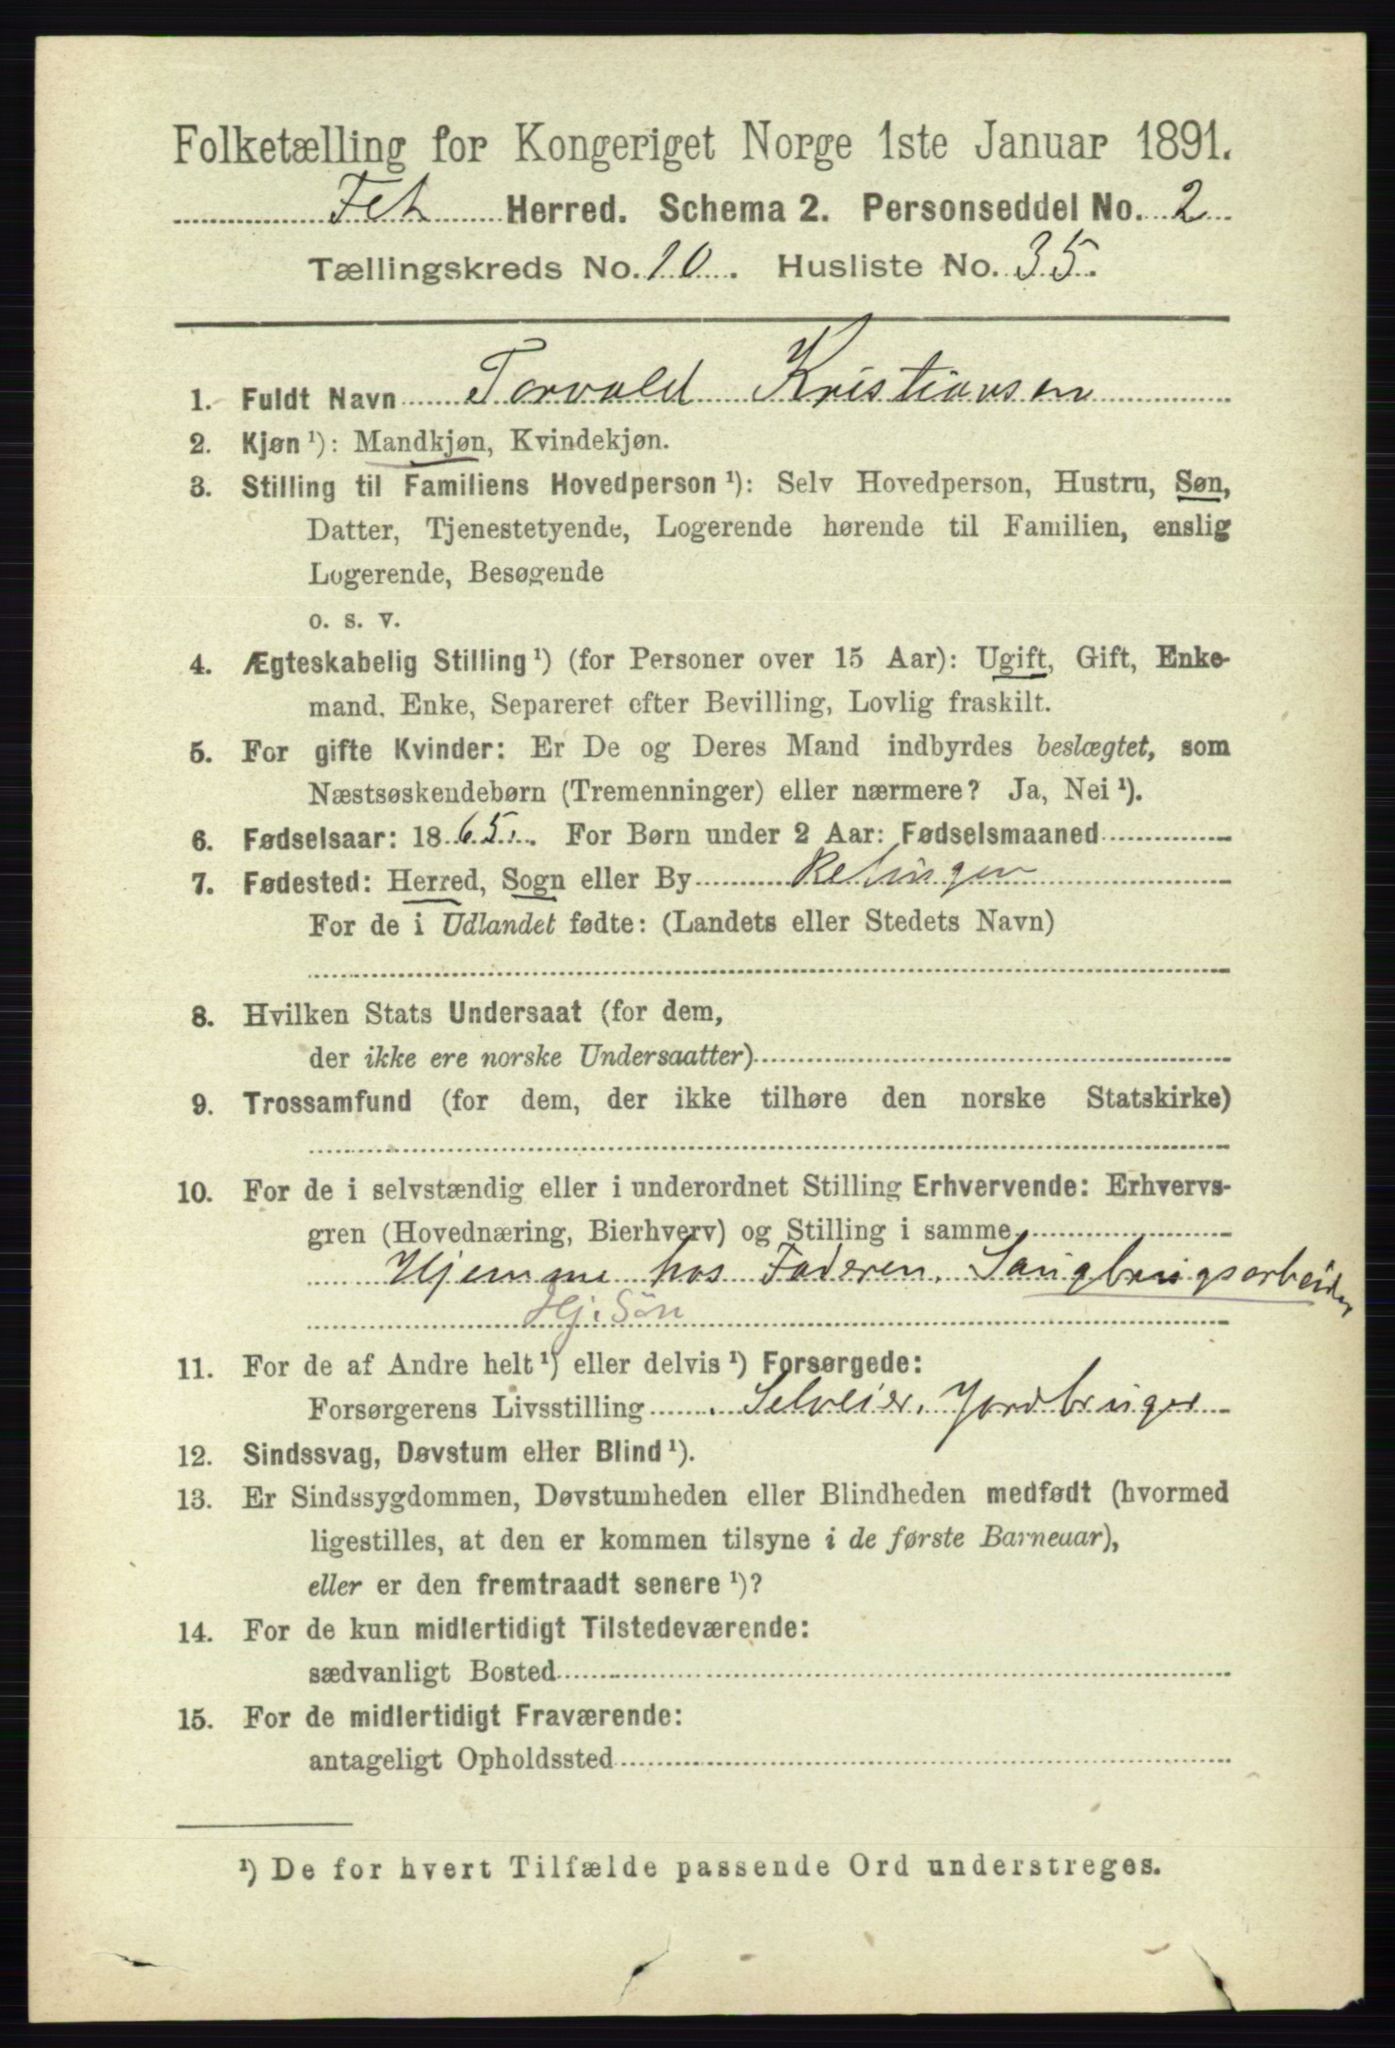 Folketælling for Kongeriget Norge 1ste Januar 1891.
Fet Herred. Schema 2. Personseddel No. 2
Tællingskreds No. 10. Husliste No. 35.
1. Fuldt Navn Torvald Kristiansen
2. Kjøn ¹): Mandkjøn, Kvindekjøn.
3. Stilling til Familiens Hovedperson ¹): Selv Hovedperson, Hustru, Søn,
Datter, Tjenestetyende, Logerende hørende til Familien, enslig
Logerende, Besøgende
o. s. v.
4. Ægteskabelig Stilling ¹) (for Personer over 15 Aar): Ugift, Gift, Enke-
mand, Enke, Separeret efter Bevilling, Lovlig fraskilt.
5. For gifte Kvinder: Er De og Deres Mand indbyrdes beslægtet, som
Næstsøskendebørn (Tremenninger) eller nærmere? Ja, Nei ¹).
6. Fødselsaar: 1865. For Børn under 2 Aar: Fødselsmaaned
7. Fødested: Herred, Sogn eller By Relingen
For de i Udlandet fødte: (Landets eller Stedets Navn)
8. Hvilken Stats Undersaat (for dem,
der ikke ere norske Undersaatter)
9. Trossamfund (for dem, der ikke tilhøre den norske Statskirke)
10. For de i selvstændig eller i underordnet Stilling Erhvervende: Erhvervs-
gren (Hovednæring, Bierhverv) og Stilling i samme
Hjemme hos Faderen. Saugbrugsarbeider
Hj. Søn
11. For de af Andre helt ¹) eller delvis ¹) Forsørgede:
Forsørgerens Livsstilling Selveier, Jordbruger
12. Sindssvag, Døvstum eller Blind ¹).
13. Er Sindssygdommen, Døvstumheden eller Blindheden medfødt (hvormed
ligestilles, at den er kommen tilsyne i de første Barneaar),
eller er den fremtraadt senere ¹)?
14. For de kun midlertidigt Tilstedeværende:
sædvanligt Bosted
15. For de midlertidigt Fraværende:
antageligt Opholdssted
¹) De for hvert Tilfælde passende Ord understreges.